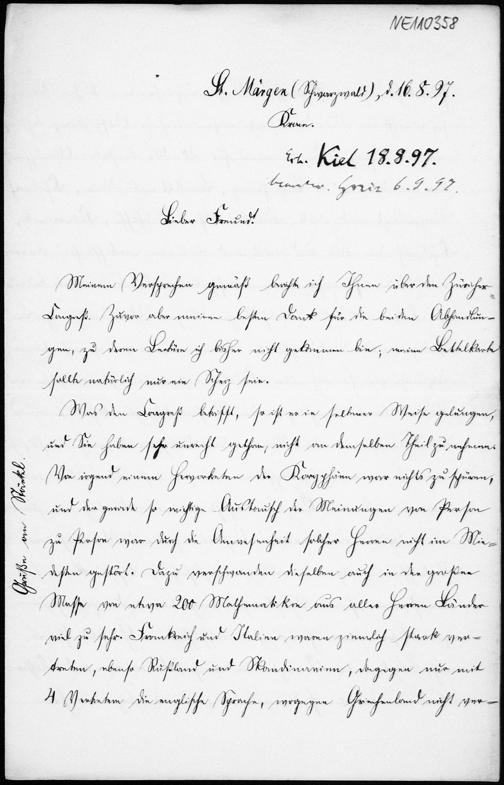 NE110358
St. Märgen (Schwarzwald), d. 16.8.97.
Krone.
Erh. Kiel 18.8.97.
beantw. Greiz 6.9.97.
Lieber Freund!
Meinem Versprechen gemäß berichte ich Ihnen über den Züricher-
Congreß. Zuvor aber meinen besten Dank für die beiden Abhandlun-
gen, zu deren Lectüre ich bisher nicht gekommen bin; meine Bettelkarte
sollte natürlich nur ein Scherz sein.
Was den Congreß betrifft, so ist er in seltener Weise gelungen,
und Sie haben sehr unrecht gethan, nicht an demselben Theil zu nehmen.
Von irgend einem Hervortreten der Koryphäen war nichts zu spüren,
und der gerade so wichtige Austausch der Meinungen von Person
zu Person war durch die Anwesenheit solcher Herren nicht im Min-
desten gestört. Dazu verschwanden dieselben auch in der großen
Masse von etwa 200 Mathematikern aus aller Herren Länder
viel zu sehr. Frankreich und Italien waren ziemlich stark ver-
treten, ebenso Rußland und Skandinavien, dagegen nur mit
4 Vertretern die englische Sprache, wogegen Griechenland nicht ver-
Grüße an Stäckel.